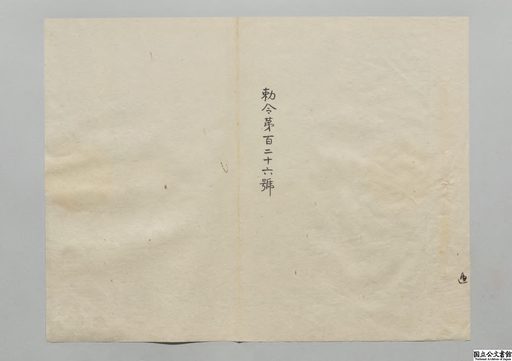 勅令第百二十六號
国立公文書館
National Archives of Japan